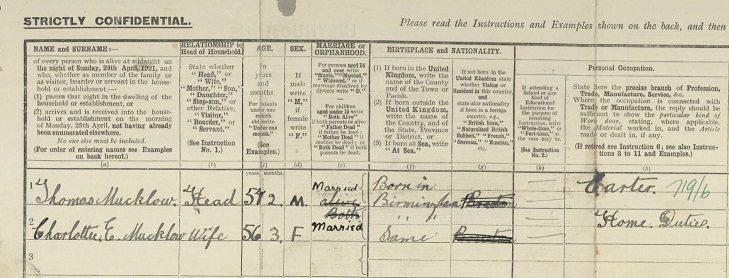 STRICTLY CONFIDENTIAL.
Please read the Instructions and Examples shown on the back, and then
NAME and SURNAME:—
of every person who is alive at midnight on
the night of Sunday, 24th April, 1921, and
who, whether as member of the family or
as visitor, boarder or servant in the house-
hold or establishment,—
(1) passes that night in the dwelling of the
household or establishment, or
(2) arrives and is received into the house-
hold or establishment on the morning
of Monday, 25th April, not having already
been enumerated elsewhere.
No one else must be included.
(For order of entering names see Examples
on back hereof.)
(a)
RELATIONSHIP to
Head of Household.
State whether
"Head," or
"Wife,"
"Mother," "Son,"
"Daughter,"
"Step-son," or
other Relative,
"Visitor,"
"Boarder," or
"Servant."
(See Instruction
No. 1.)
(b)
AGE.
in
years
and
months.
For infants
under one
month old
write
"Under one
month."
(See
Examples.)
(c)
SEX.
If
male
write
"M,"
if
female
write
"F."
(d)
MARRIAGE or
ORPHANHOOD.
For persons aged 15
and over write
(e)
BIRTHPLACE and NATIONALITY.
(1) If born in the United
Kingdom, write
the name of the County
and of the Town or
Parish.
(2) If born outside the
United Kingdom,
write the name of
the County, State,
Province
or District, or
(3) If born at Sea, write
"At Sea."
(f)
If not born in the
United Kingdom state
whether Visitor or
Resident in this country,
and
state also nationality
if born in a foreign
country, e.g.,
(g)
If attending a
School or any
kind of
Educational
Institution for the
purpose of
receiving
instruction write
(See
Instruction
No. 2.)
(h)
Personal Occupation.
State here the precise branch of Profession,
Trade, Manufacture, Service, &c.
Where the occupation is connected with
Trade or Manufacture, the reply should
be sufficient to show the particular kind of
Work done, stating, where applicable,
the Material worked in, and the Article
made or dealt in, if any.
(If retired see Instruction 6; see also Instruc-
tions 3 to 11 and Examples.)
(k)
years. months.
1 Thomas Mucklow. Head 57 2. M. Married Born in Birmingham Carter. 719/6
Both
2 Charlotte, E. Mucklow Wife 56 3. F Married Same Home. Duties.
3